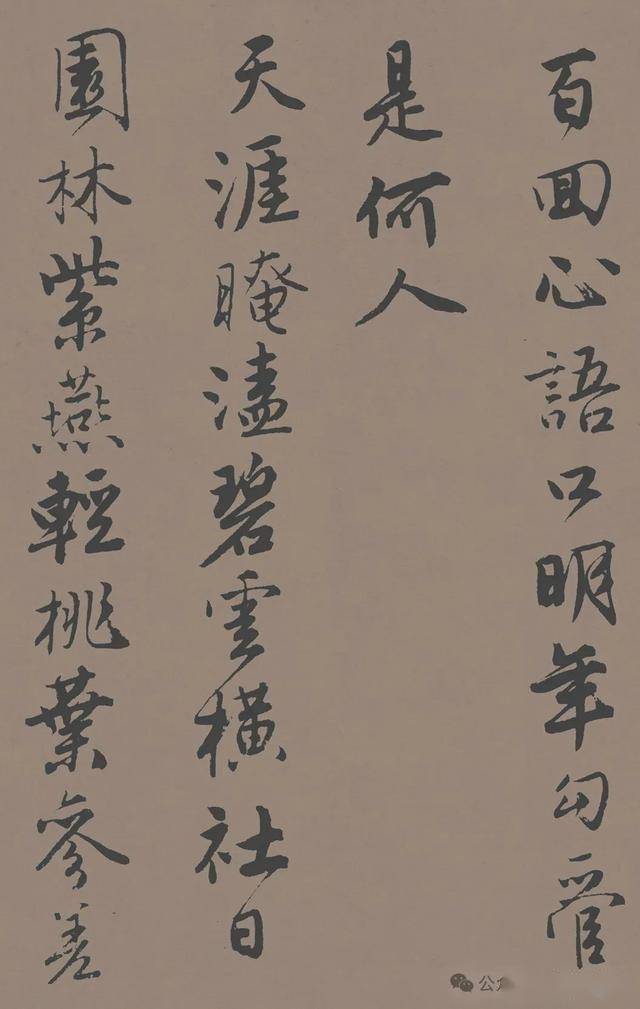 百回心語口明年勾管
是何人
天涯晻溘碧雲橫社日
園林紫燕輕桃葉參差
公